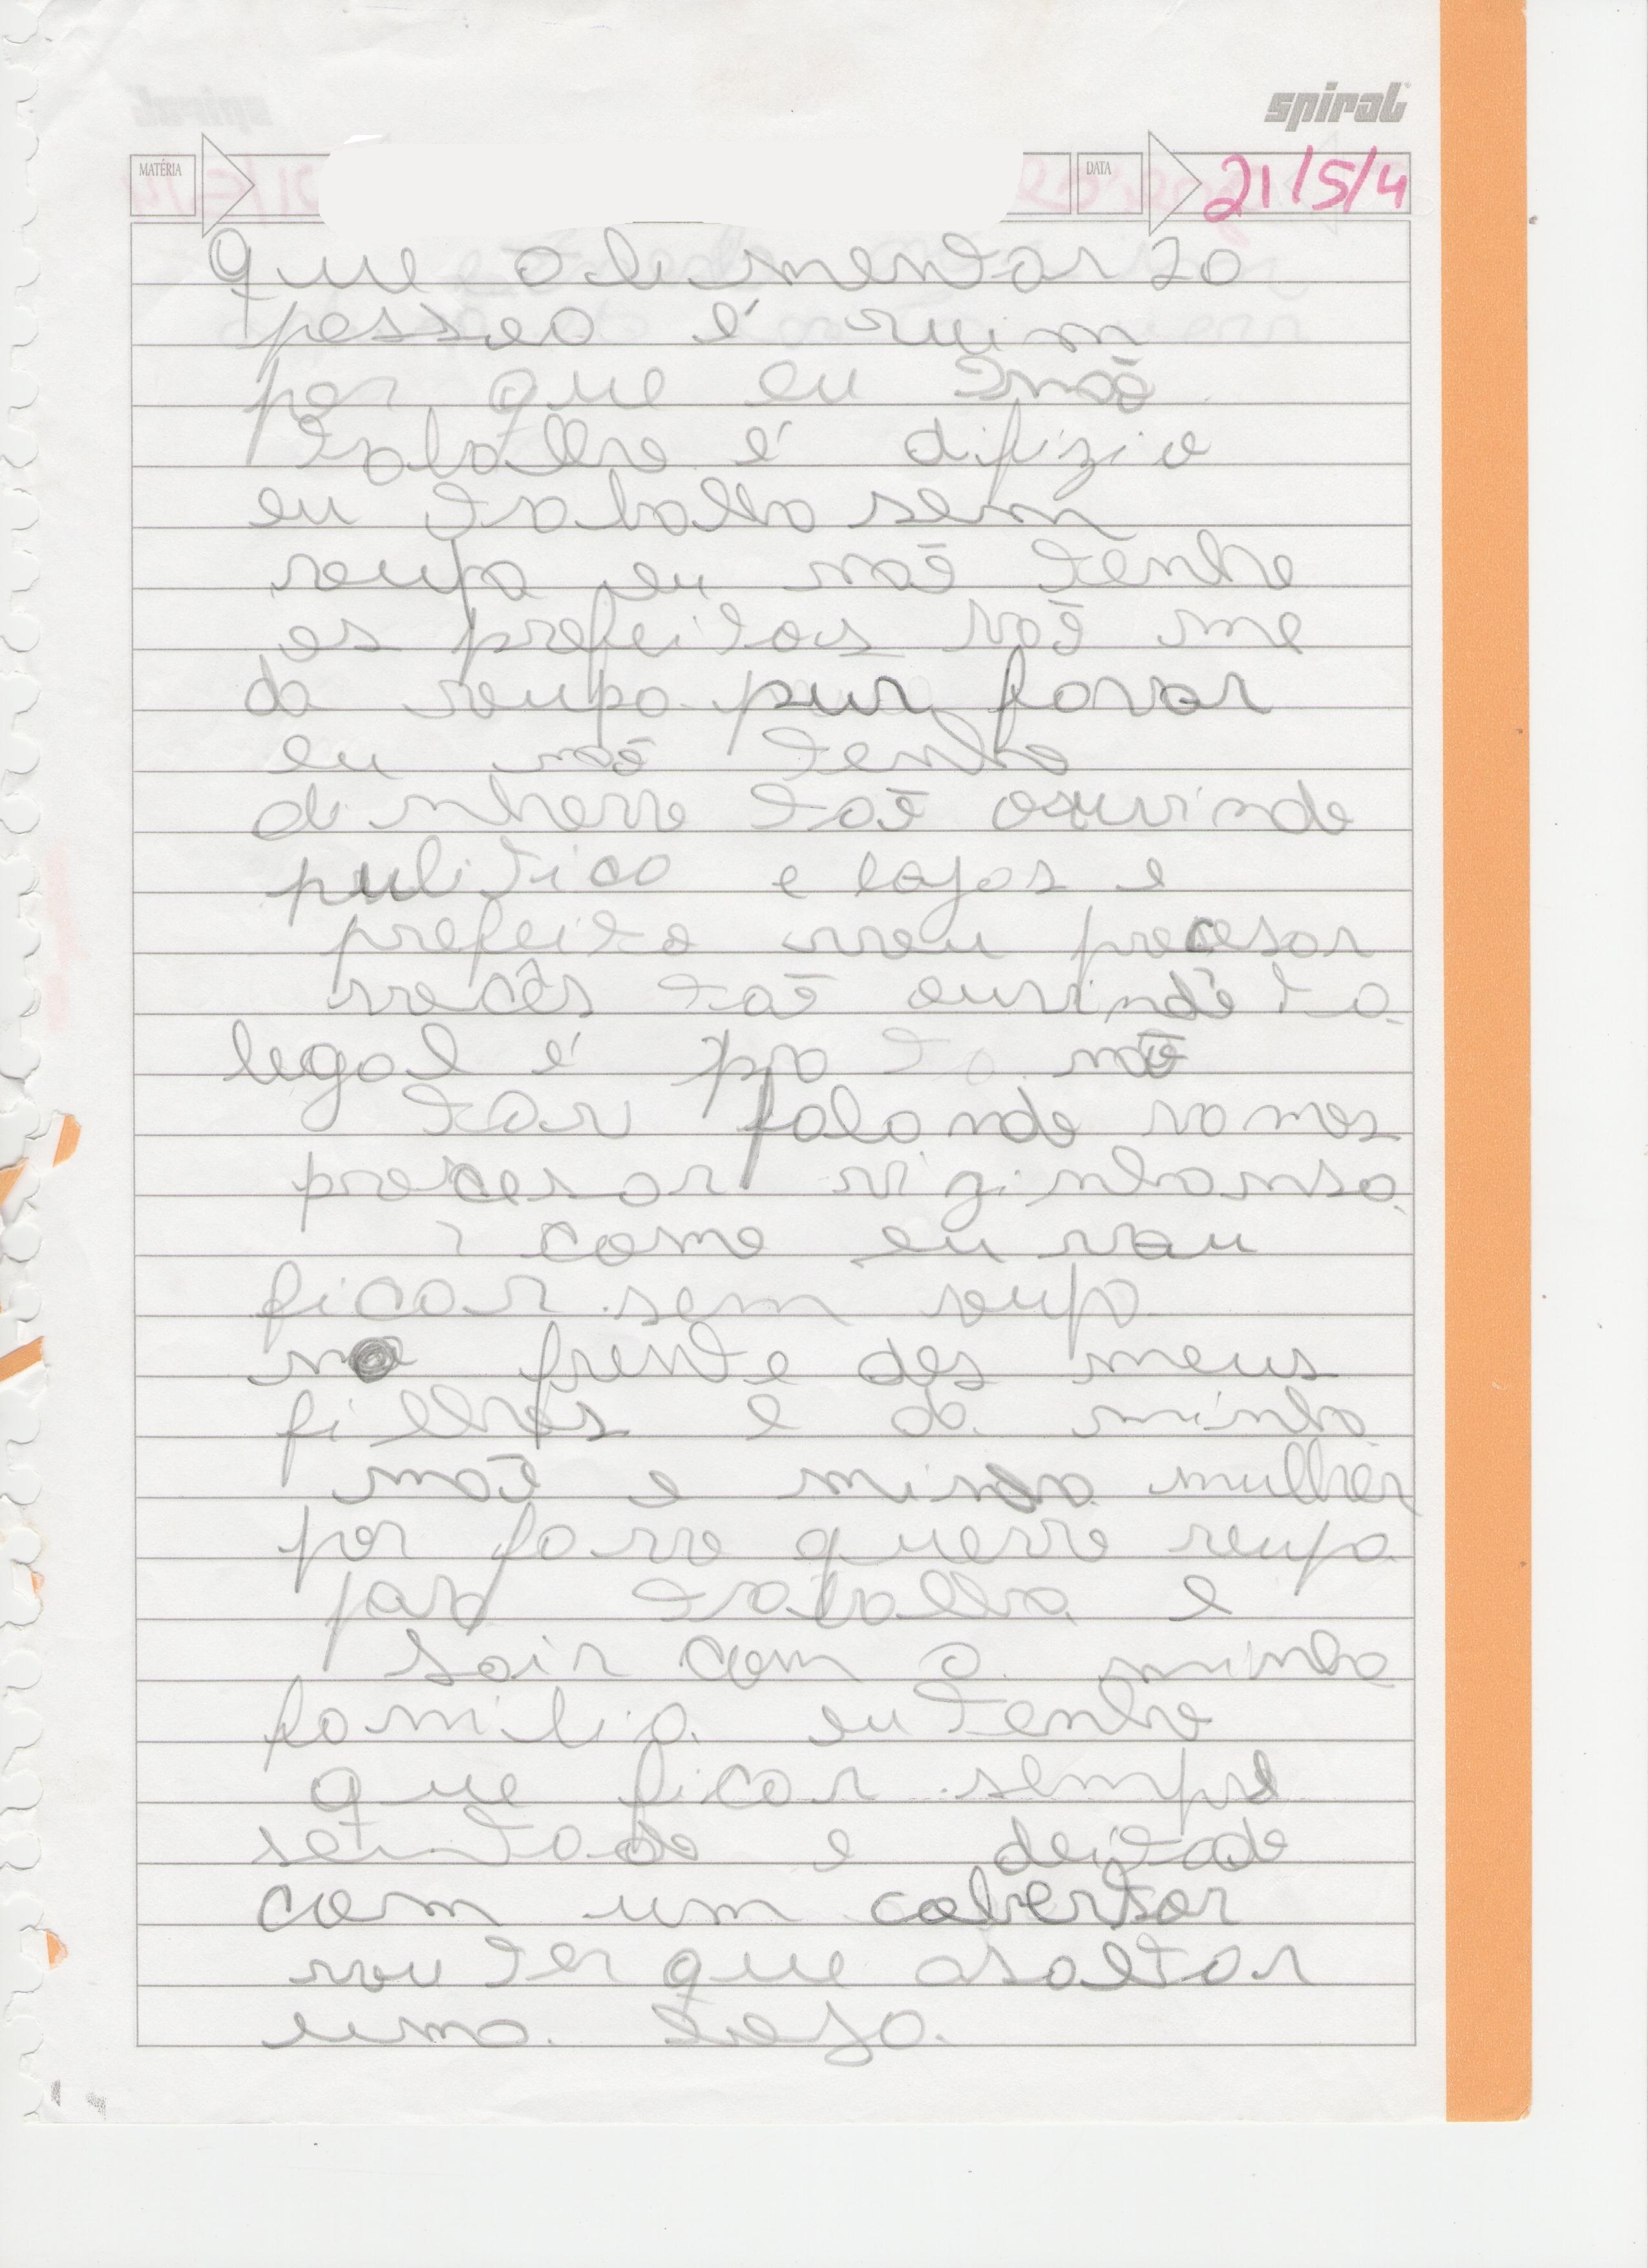 spiral
MATÉRIA DATA 21/5/4
que alimentar 20
pessoa é ruim
por que eu não
trabalho é difizio
eu trabalho sem
roupa eu não tenho
os prefeitos não me
da roupa pur favor
eu não tenho
dinherro taõ ouvindo
pulitico e lojas e
prefeito vou precesar
vocês taõ ouvindo ta
legal é pra não
tar falando vamos
precesar viginhansa
como eu vou
ficar sem roupa
na frente dos meus
filhos e da minha
maẽ e minha mulher
por favro querro roupa
para trabalha e
sair com a minha
familia eu tenho
que ficar sempre
sentado e deitado
com um cobertor
vou ter que asaltar
uma loja.